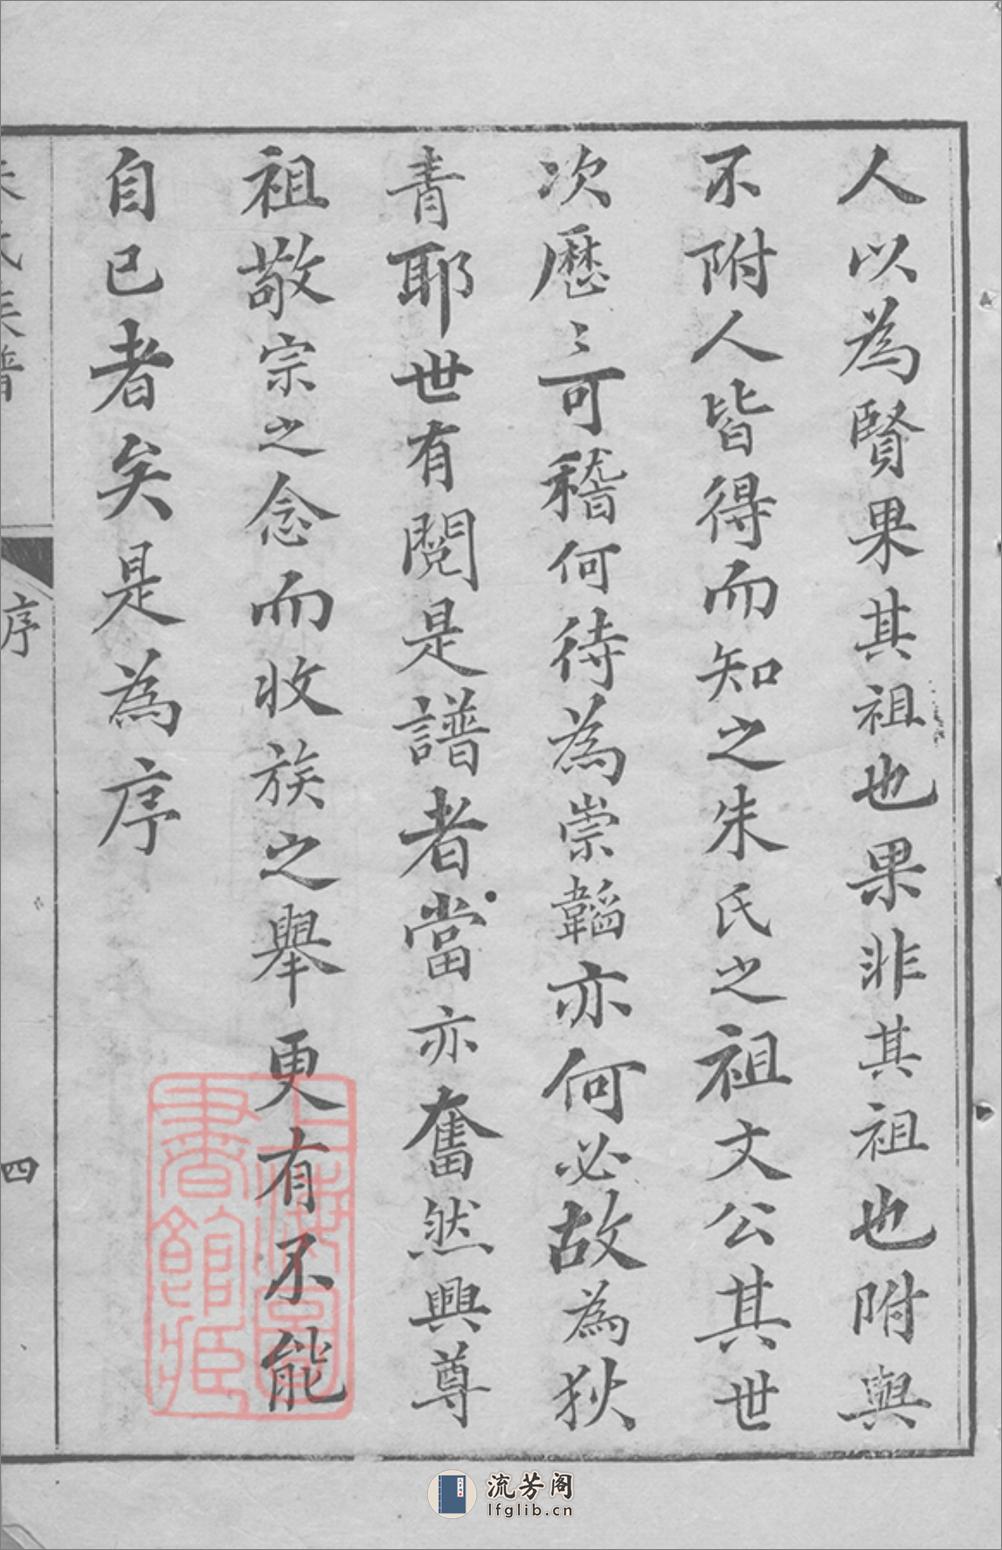 人以為賢果其祖也果非其祖也附與
不附人皆得而知之朱氏之祖文公其世
次歷〻可稽何待為崇韜亦何必故為狄
青耶世有閱是譜者當亦奮然興尊
祖敬宗之念而收族之舉更有不能
自已者矣是為序
朱氏族譜
序
四
上海圖書館藏
流芳阁
lfglib.cn